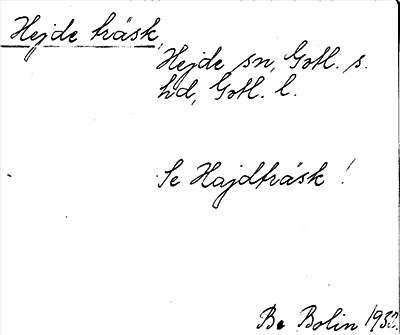 Hejde träsk,
Hejde sn, Gotl. s.
hd, Gotl. l.
Se Hajdträsk!
Be Bolin